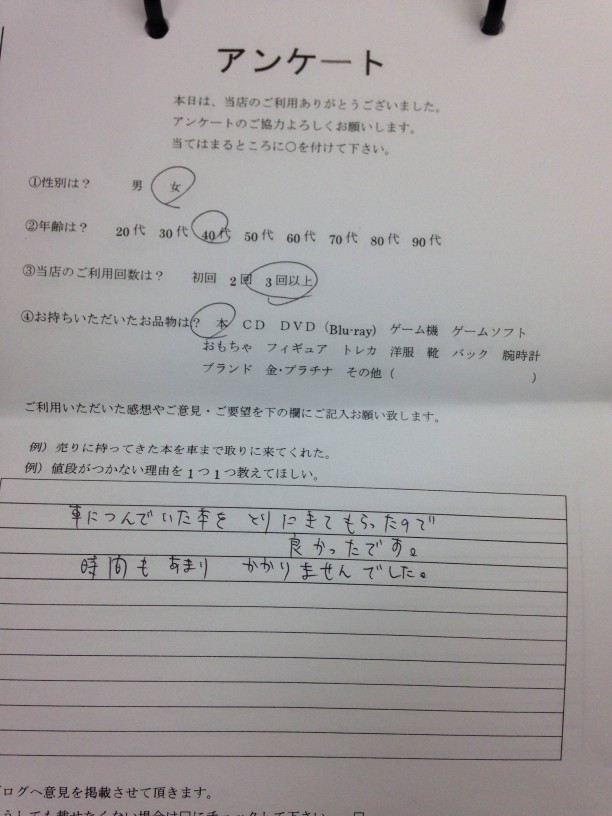 アンケート
本日は、当店のご利用ありがとうございました。
アンケートのご協力よろしくお願いします。
当てはまるところに○を付けて下さい。
①性別は？ 男 女
②年齢は？ 20代 30代 40代 50代 60代 70代 80代 90代
③当店のご利用回数は？ 初回 2回 3回以上
④お持ちいただいたお品物は？ 本 CD DVD（Blu-ray) ゲーム機 ゲームソフト
おもちゃ フィギュア トレカ 洋服 靴 バック 腕時計
ブランド 金・プラチナ その他（ ）
ご利用いただいた感想やご意見・ご要望を下の欄にご記入お願い致します。
例）売りに持ってきた本を車まで取りに来てくれた。
例）値段がつかない理由を1つ1つ教えてほしい。
車につんでいた本を とりにきてもらったので
良かったです。
時間も あまり かかりませんでした。
ログへ意見を掲載させて頂きます。
うしても載せたくない場合は□にチェックして下さい。 □